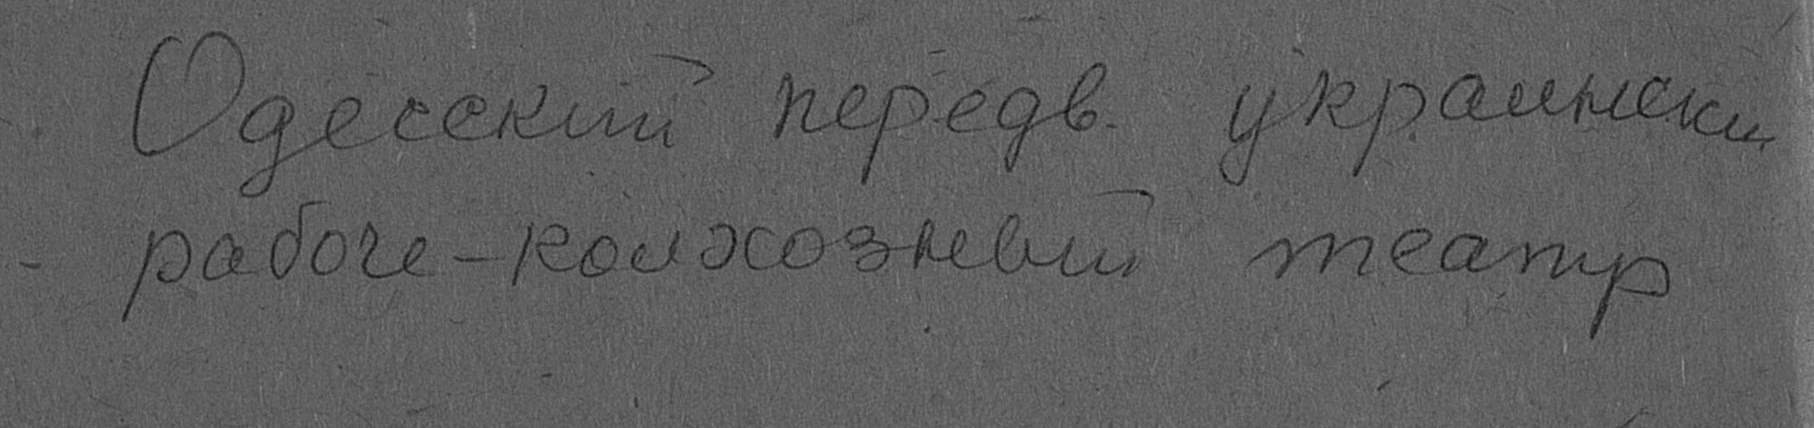 Одесский передв. украински
рабоче-колхозный театр